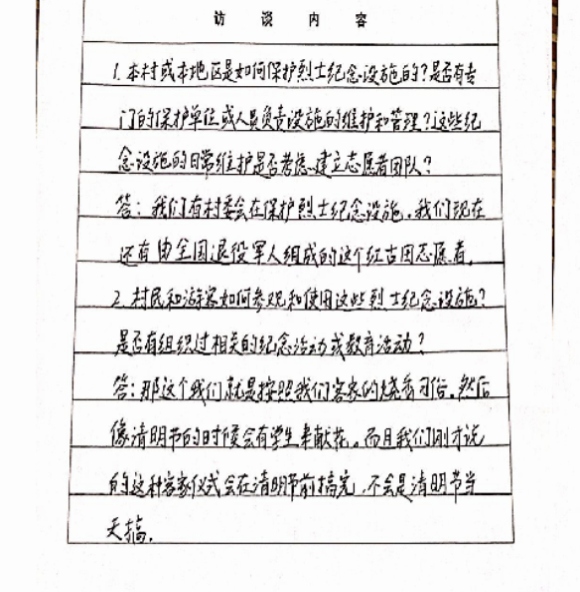 访谈内容
1.本村或本地区是如何保护烈士纪念设施的?是否有专
门的保护单位或人员负责设施的维护和管理?这些纪
念设施的日常维护是否考虑建立志愿者团队?
答:我们有村委会在保护烈士纪念设施,我们现在
还有由全国退役军人组成的这个红古田志愿者。
2.村民和游客如何参观和使用这些烈士纪念设施?
是否有组织过相关的纪念活动或教育活动?
答:那这个我们就是按照我们客家的烧香习俗。然后
像清明节的时候会有学生来献花。而且我们刚才说
的这种客家仪式会在清明节前搞完,不会是清明节当
天搞。